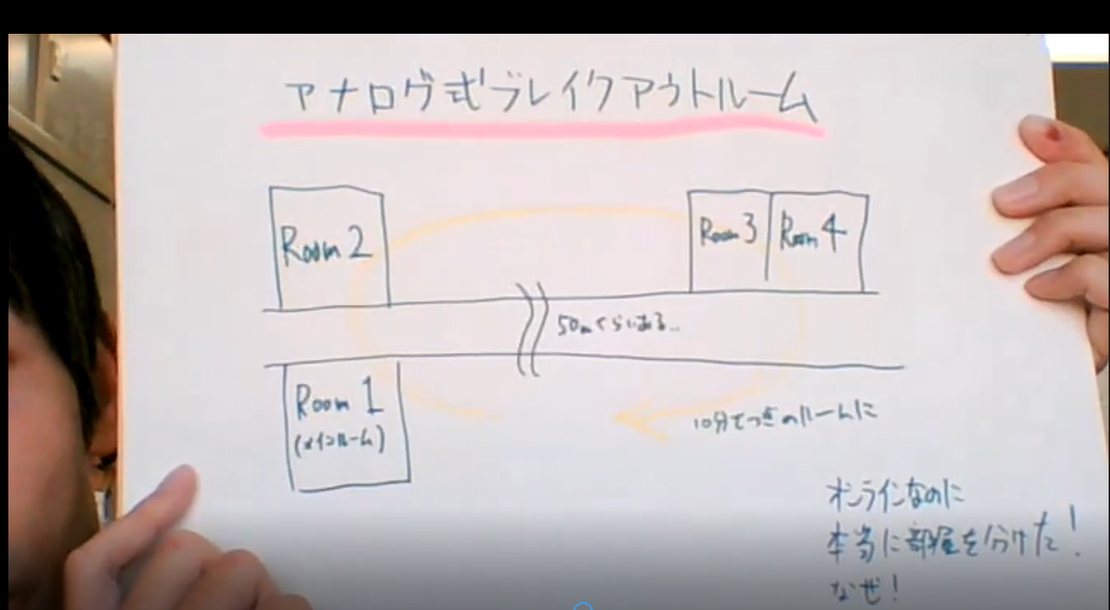 アナログ式ブレイクアウトルーム
Room 2
Room 3
Room 4
50mくらいある..
Room 1
(メインルーム)
10分でつぎのルームに
オンラインなのに
本当に部屋を分けた!
なぜ!